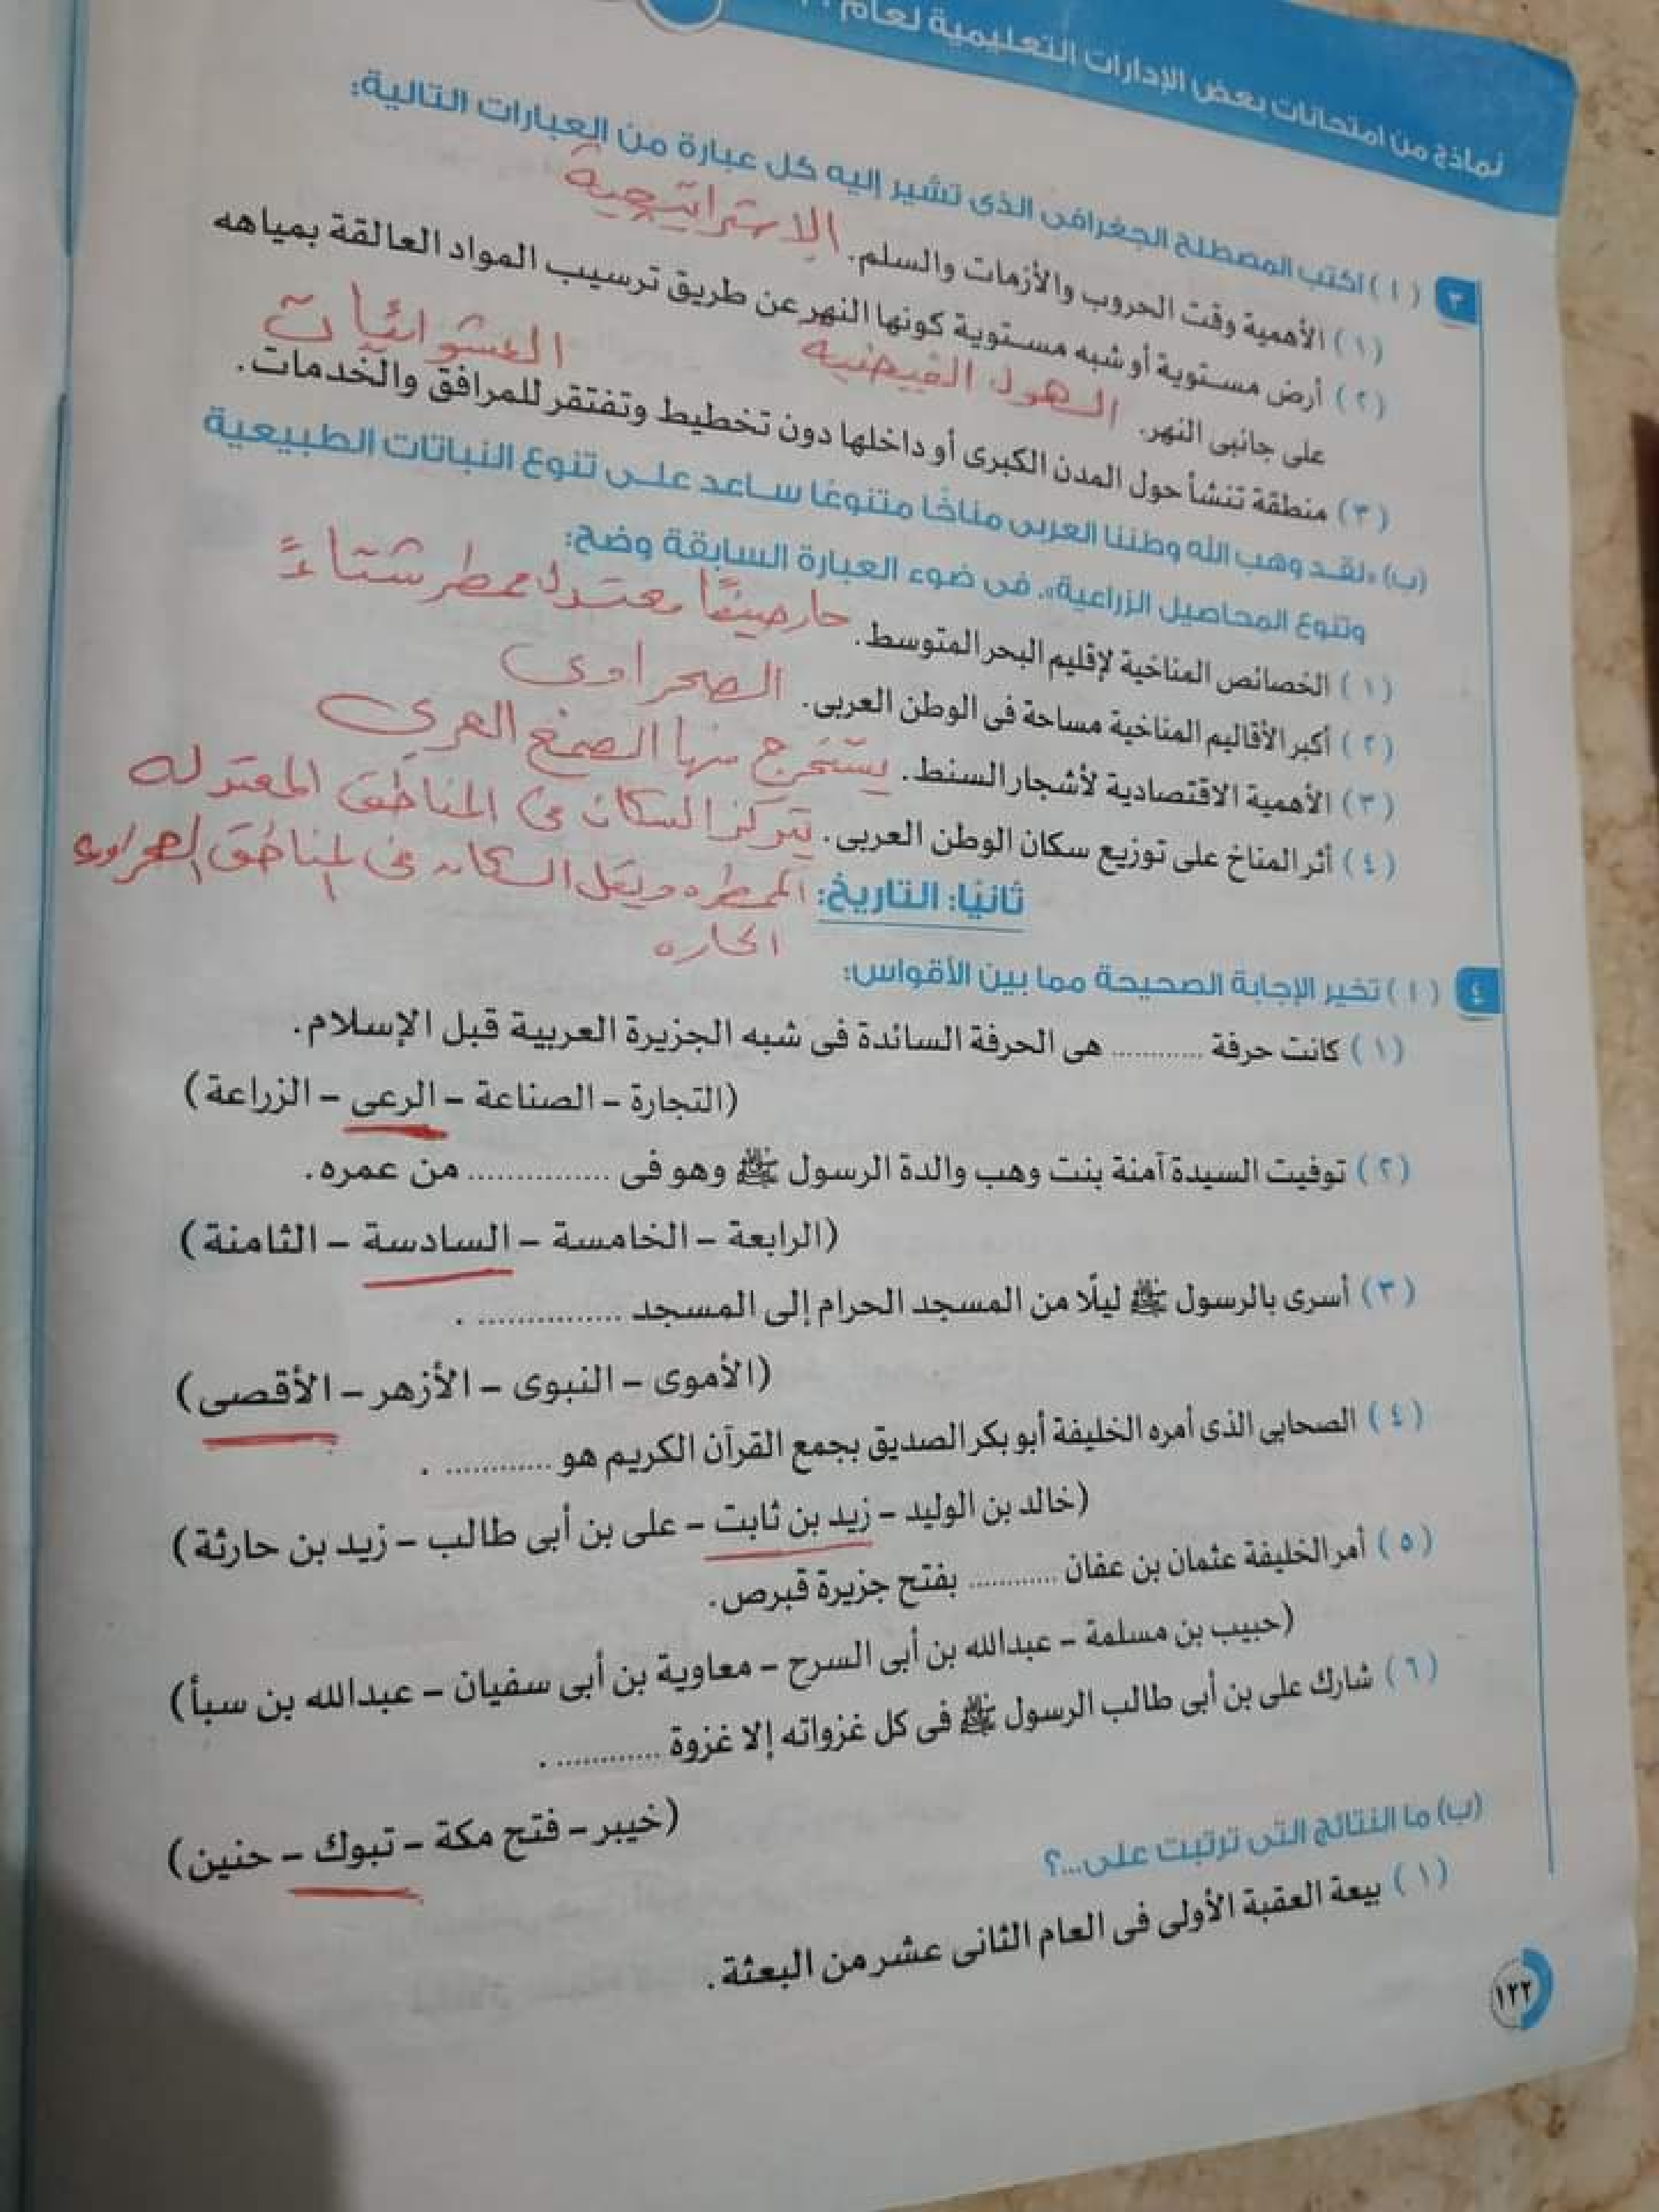 نماذج من امتحانات بعض الإدارات التعليمية لعام
٣ ( ا ) اكتب المصطلح الجغرافى الذى تشير إليه كل عبارة من العبارات التالية:
( ١ ) الأهمية وقت الحروب والأزمات والسلم. الاستراتيجية
( ٢ ) أرض مستوية أو شبه مستوية كونها النهر عن طريق ترسيب المواد العالقة بمياهه
على جانبى النهر. السهول الفيضيه
العشوائيات
( ٣ ) منطقة تنشأ حول المدن الكبرى أو داخلها دون تخطيط وتفتقر للمرافق والخدمات.
(ب) «لقد وهب الله وطننا العربى مناخًا متنوعًا ساعد على تنوع النباتات الطبيعية
وتنوع المحاصيل الزراعية». فى ضوء العبارة السابقة وضح:
( ١ ) الخصائص المناخية لإقليم البحر المتوسط. حار صيفًا معتدل ممطر شتاءً
( ٢ ) أكبر الأقاليم المناخية مساحة فى الوطن العربى. الصحراوى
( ٣ ) الأهمية الاقتصادية لأشجار السنط. يستخرج منها الصمغ العربى
( ٤ ) أثر المناخ على توزيع سكان الوطن العربى. يتركز السكان فى المناطق المعتدله
الممطره ويقل السكان فى المناطق الصحراويه
ثانيًا: التاريخ:
الحاره
٤ ( ا ) تخير الإجابة الصحيحة مما بين الأقواس:
( ١ ) كانت حرفة ............ هى الحرفة السائدة فى شبه الجزيرة العربية قبل الإسلام.
(التجارة – الصناعة – الرعى – الزراعة)
( ٢ ) توفيت السيدة آمنة بنت وهب والدة الرسول ﷺ وهو فى ............... من عمره.
(الرابعة – الخامسة – السادسة – الثامنة)
( ٣ ) أسرى بالرسول ﷺ ليلًا من المسجد الحرام إلى المسجد ............... .
(الأموى – النبوى – الأزهر – الأقصى)
( ٤ ) الصحابى الذى أمره الخليفة أبو بكر الصديق بجمع القرآن الكريم هو ............ .
(خالد بن الوليد – زيد بن ثابت – على بن أبى طالب – زيد بن حارثة)
( ٥ ) أمر الخليفة عثمان بن عفان ............ بفتح جزيرة قبرص.
(حبيب بن مسلمة – عبدالله بن أبى السرح – معاوية بن أبى سفيان – عبدالله بن سبأ)
( ٦ ) شارك على بن أبى طالب الرسول ﷺ فى كل غزواته إلا غزوة ............ .
(خيبر – فتح مكة – تبوك – حنين)
(ب) ما النتائج التى ترتبت على...؟
( ١ ) بيعة العقبة الأولى فى العام الثانى عشر من البعثة.
١٢٢